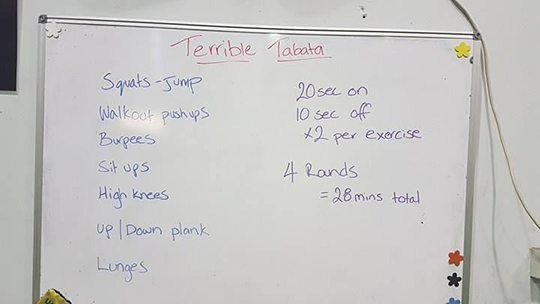 Terrible Tabata
Squats - Jump
Walkout pushups
Burpees
Sit ups
High knees
Up / Down plank
Lunges
20 sec on
10 sec off
x2 per exercise
4 Rands
= 28 mins total